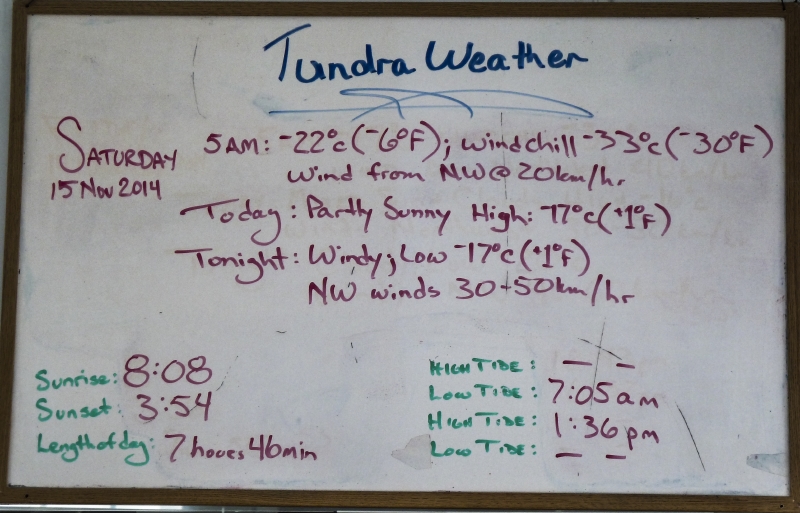 Tundra Weather
SATURDAY
15 Nov 2014
5AM: -22°C (-6°F); windchill -33°C (-30°F)
wind from NW@20km/hr
Today: Partly Sunny High: -17°C (+1°F)
Tonight: Windy; Low -17°C (+1°F)
NW winds 30-50km/hr
Sunrise: 8:08
Sunset: 3:54
Length of day: 7 hours 46min
HIGH TIDE: — —
LOW TIDE: 7:05 am
HIGH TIDE: 1:36 pm
LOW TIDE: — —